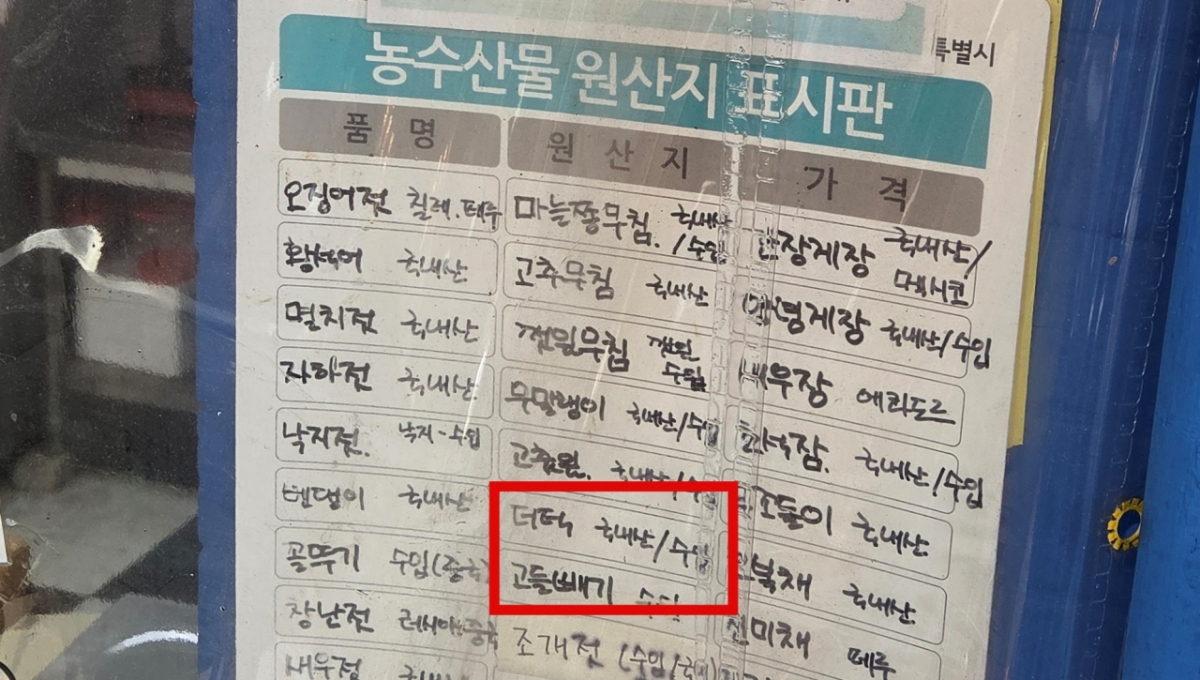 특별시
농수산물 원산지 표시판
품 명 원 산 지 가 격
오징어젓 칠레.페루
황석어 국내산
멸치젓 국내산
자하젓 국내산
낙지젓. 낙지-수입
밴댕이 국내산
꼴뚜기 수입(중국)
창난젓 러시아
새우젓 국내산
마늘쫑무침. 국내산/수입
고추무침 국내산
깻잎무침 깻잎 수입
무말랭이 국내산/수입
국내산/수입
더덕 국내산/수입
고들빼기 수입
조개젓 (수입/국
간장게장 국내산/멕시코
양념게장 국내산/수입
새우장 에콰도르
국내산/수입
국내산
국내산
페루